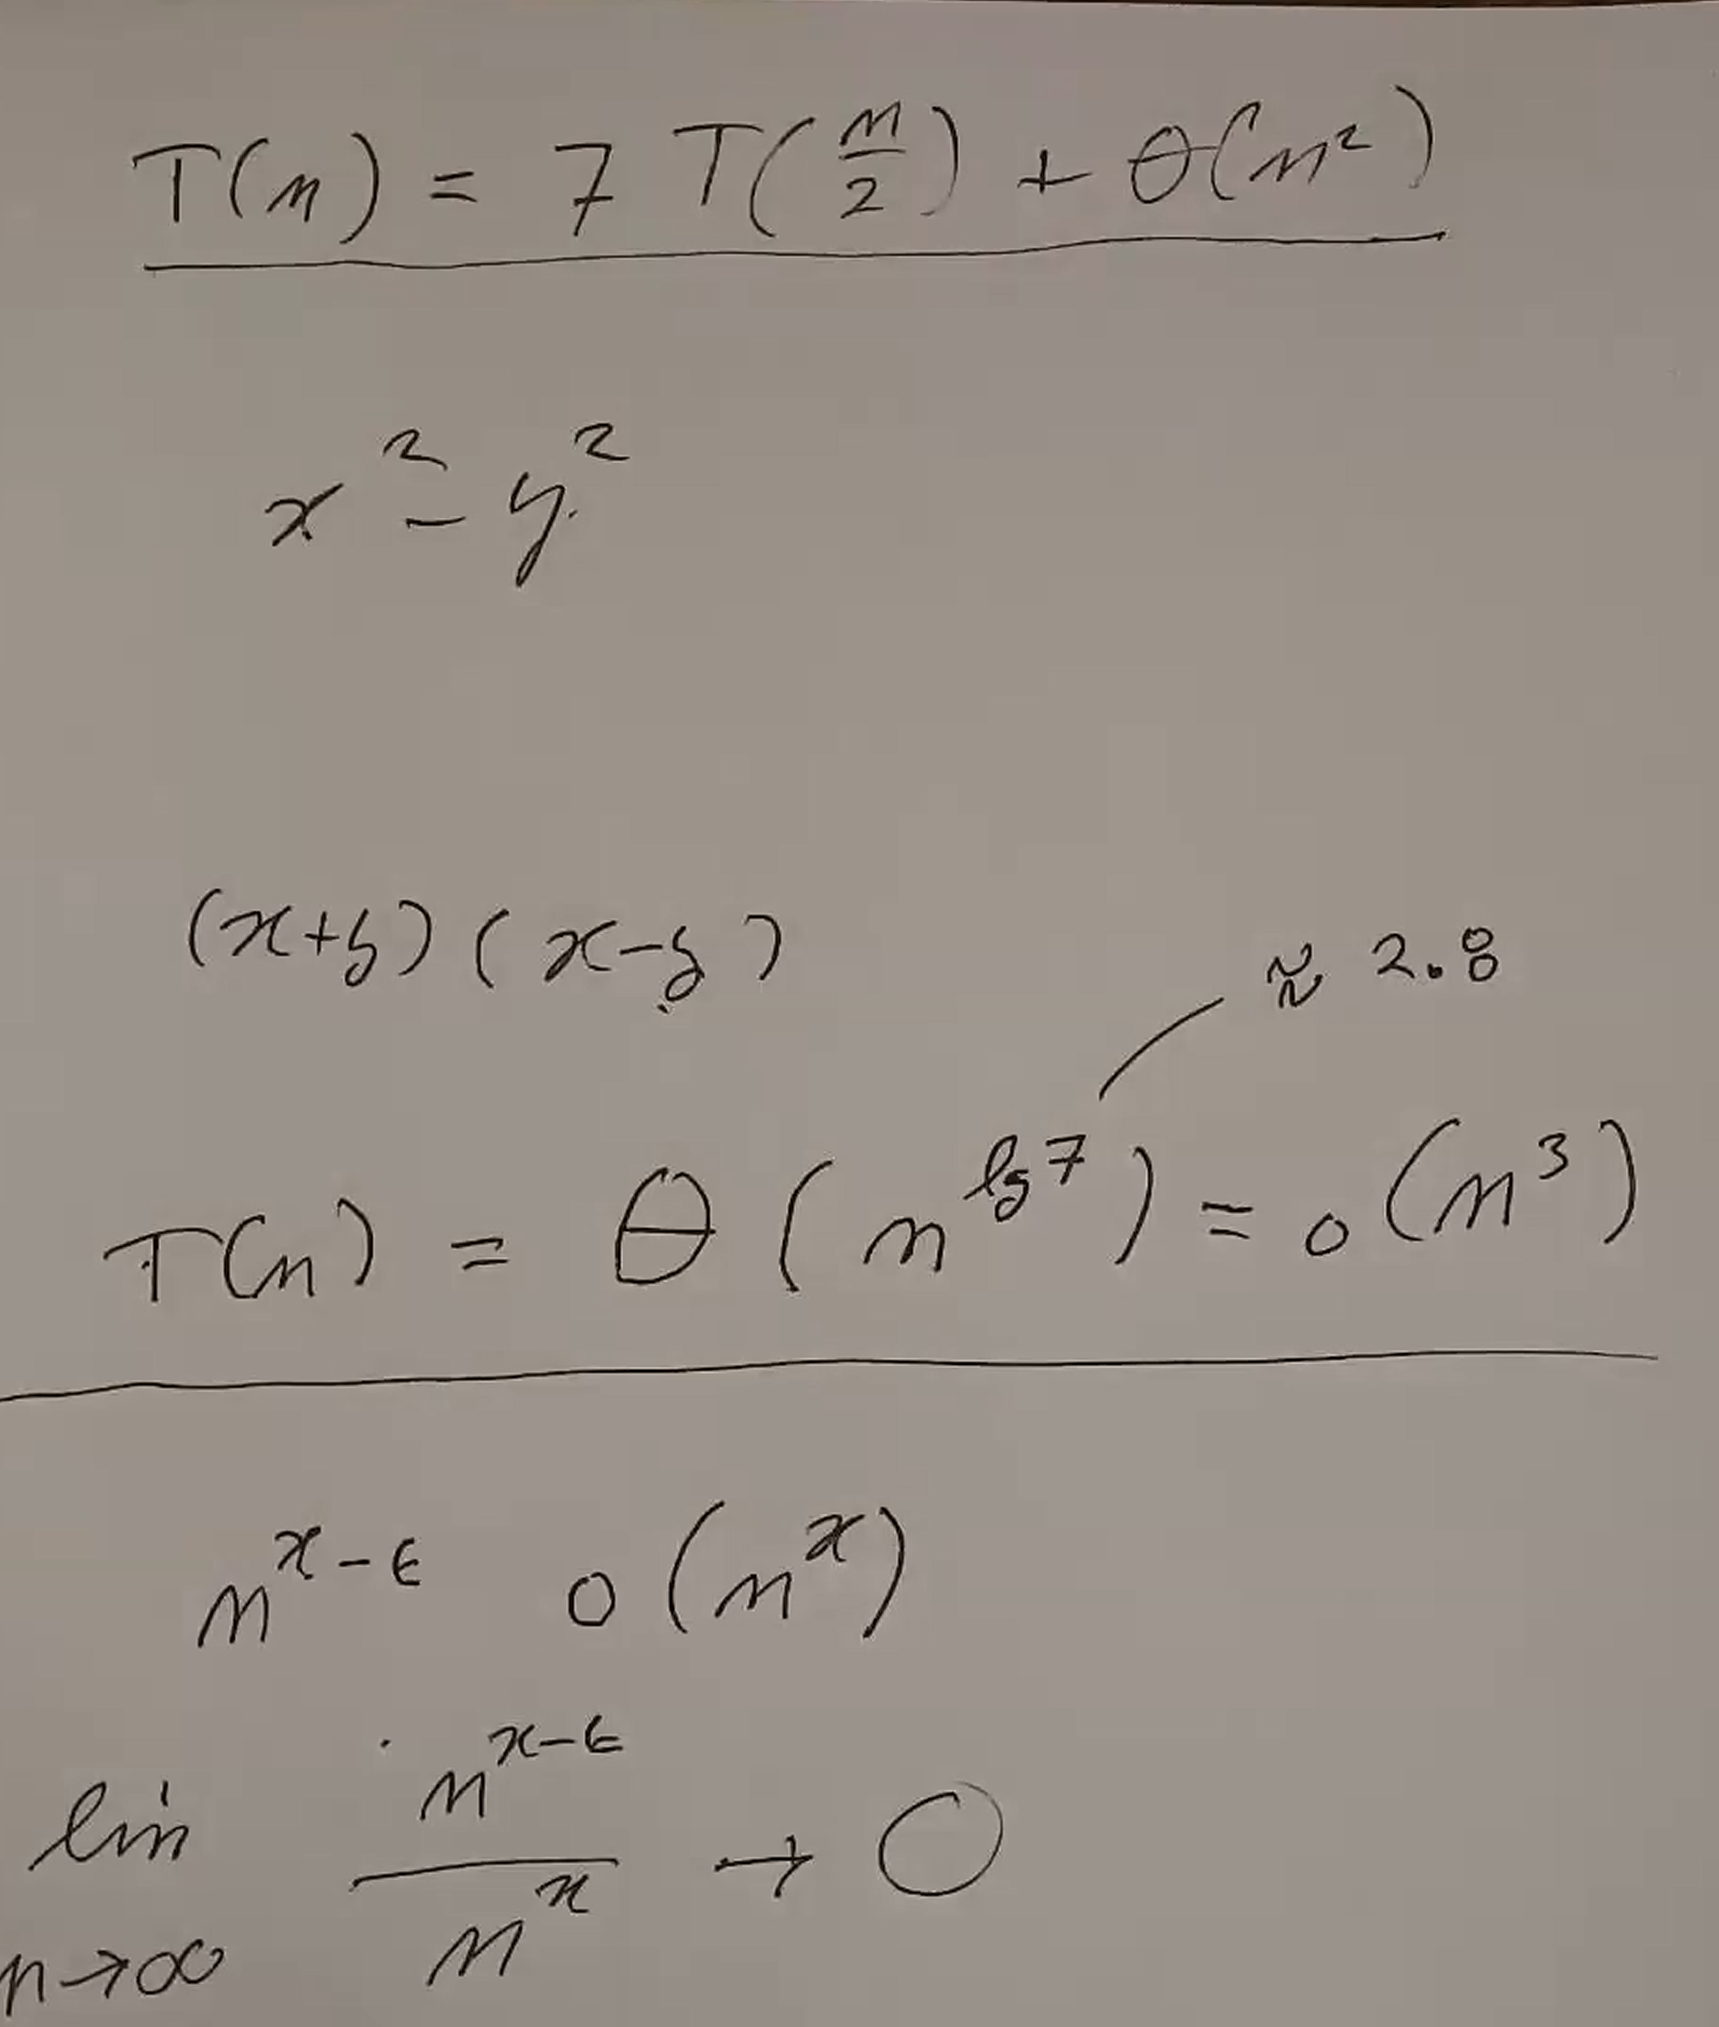 T(n) = 7 T(n/2) + θ(n²)
x² - y²
(x+y)(x-y)
≈ 2.8
T(n) = θ(n^lg 7) = o(n³)
n^x-ϵ o(n^x)
lim n→∞ n^x-ϵ / n^x → 0